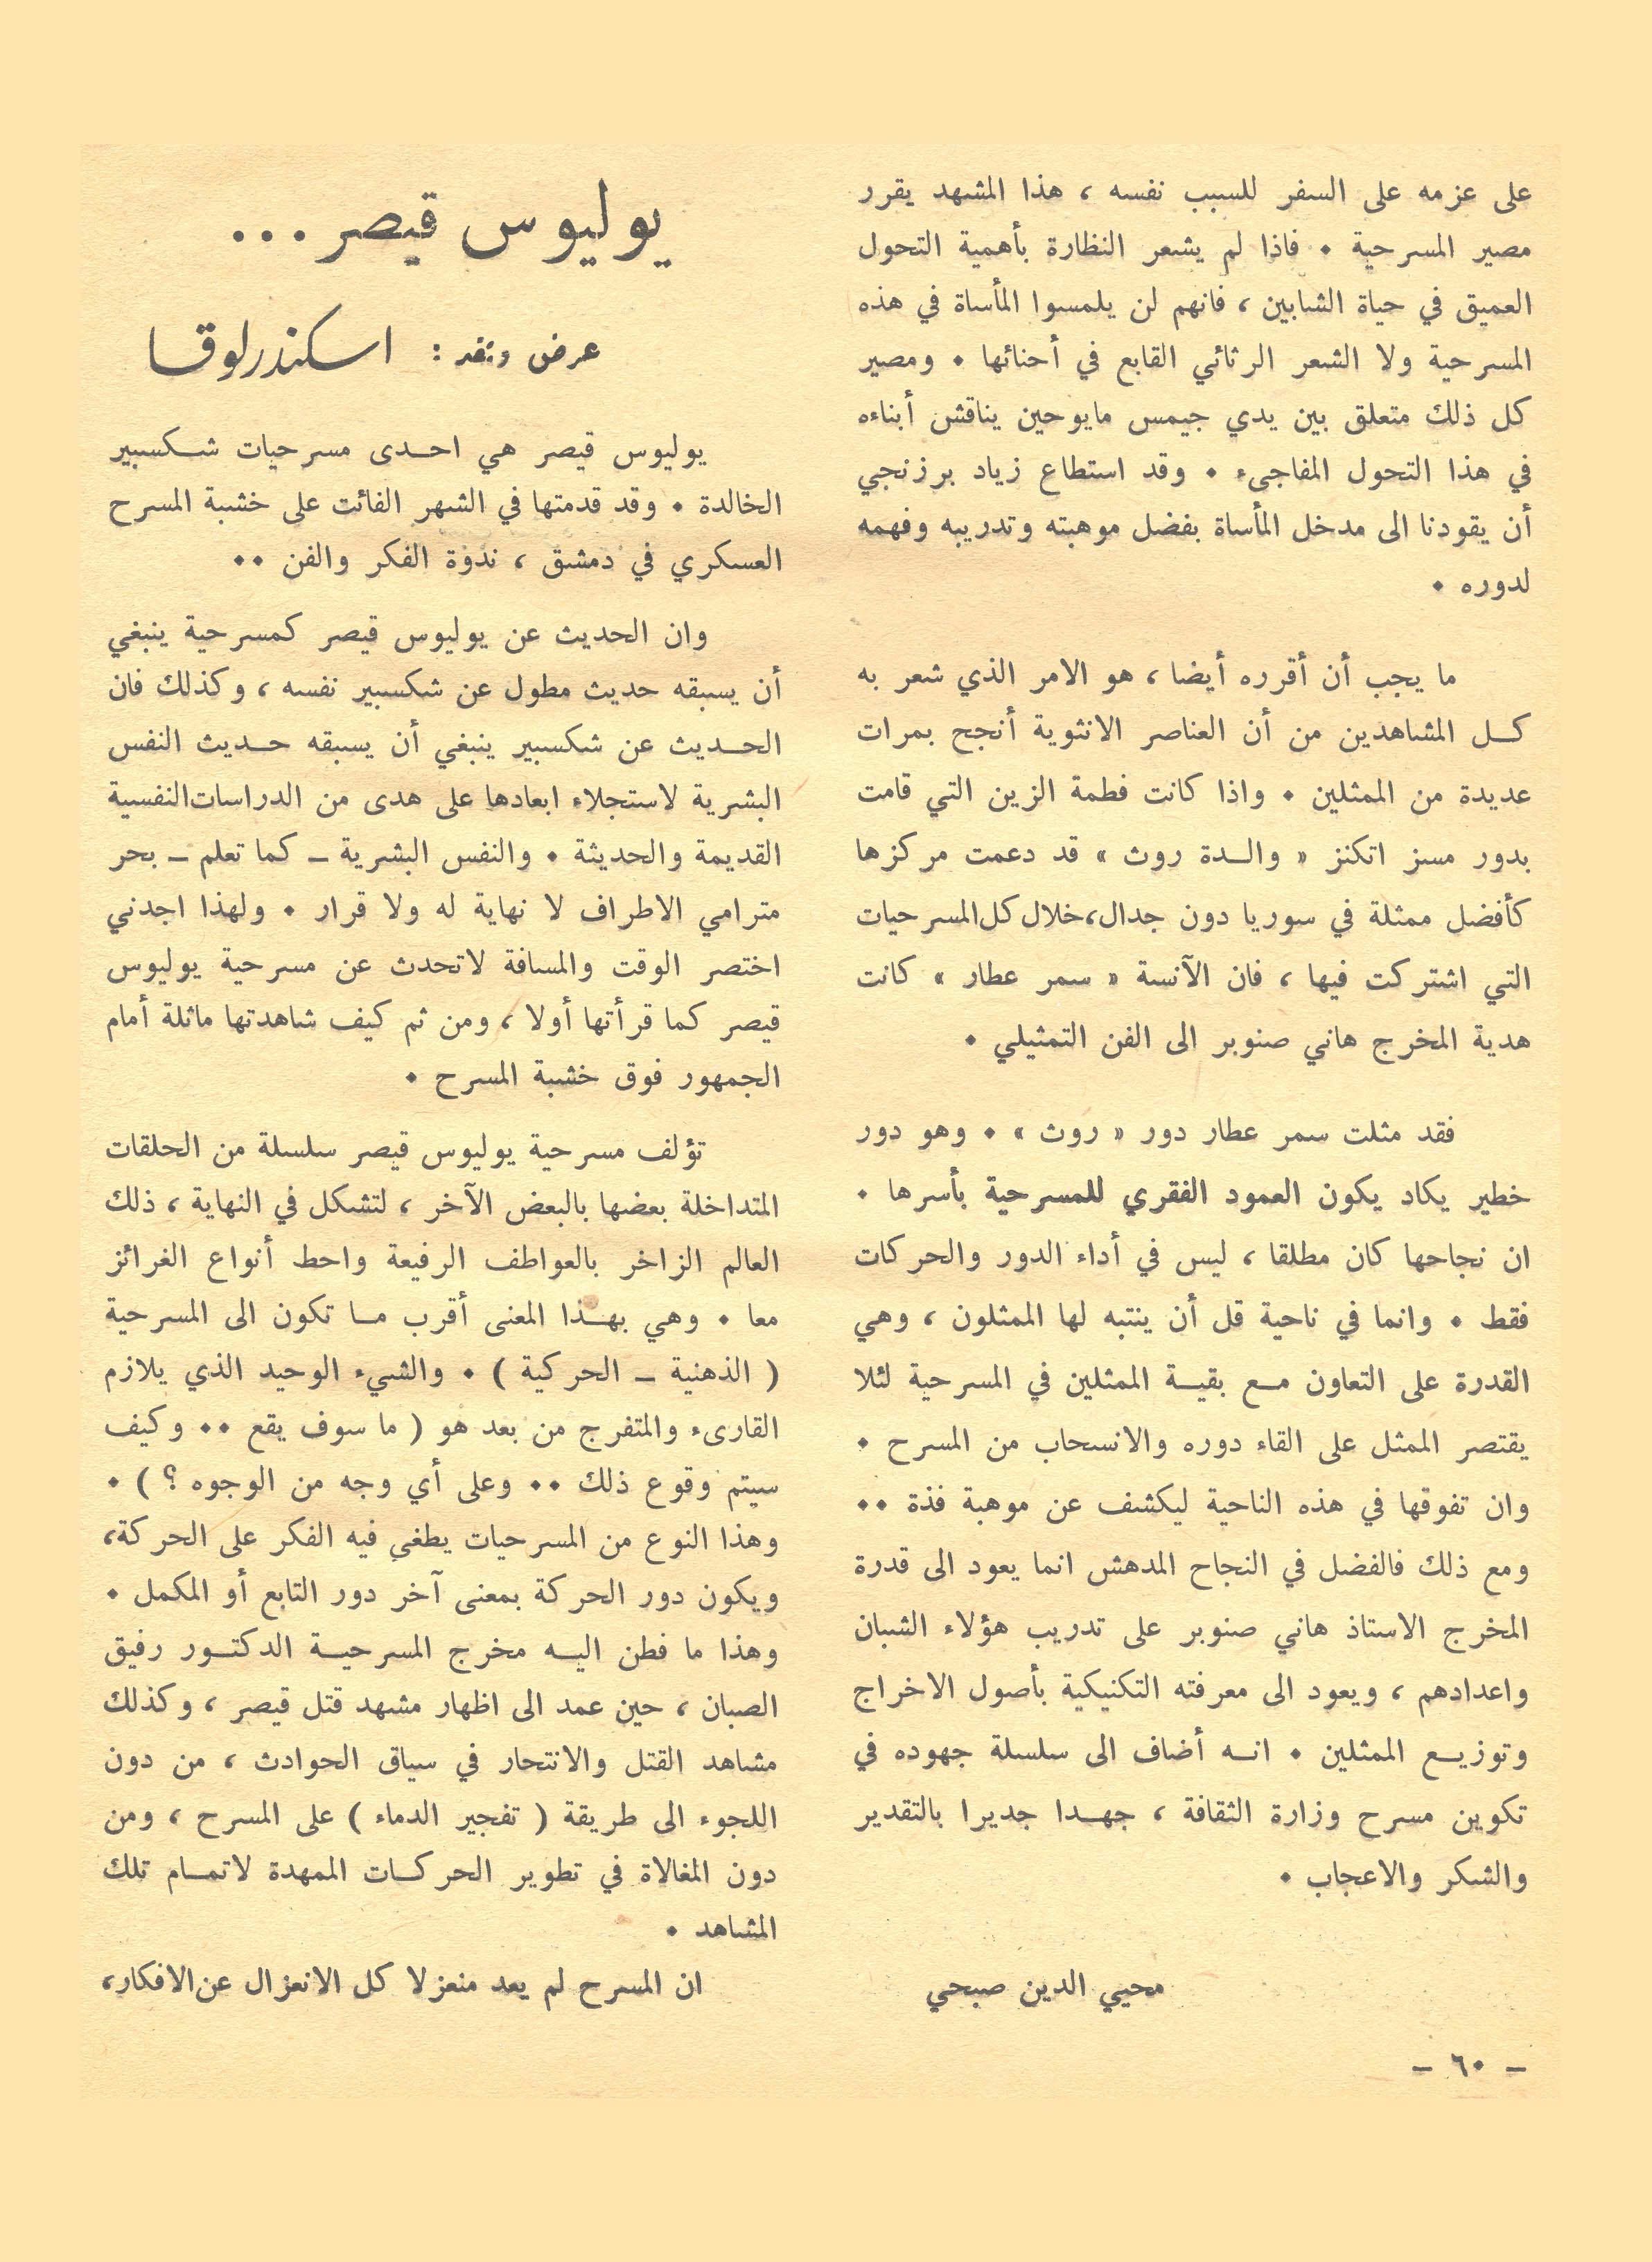 على عزمه على السفر للسبب نفسه ، هذا المشهد يقرر
مصير المسرحية • فاذا لم يشعر النظارة بأهمية التحول
العميق في حياة الشابين ، فانهم لن يلمسوا المأساة في هذه
المسرحية ولا الشعر الرثائي القابع في أحنائها • ومصير
كل ذلك متعلق بين يدي جيمس مايوحين يناقش أبناءه
في هذا التحول المفاجىء • وقد استطاع زياد برزنجي
أن يقودنا الى مدخل المأساة بفضل موهبته وتدريبه وفهمه
لدوره •
ما يجب أن أقرره أيضا ، هو الامر الذي شعر به
كل المشاهدين من أن العناصر الانثوية أنجح بمرات
عديدة من الممثلين • واذا كانت فطمة الزين التي قامت
بدور مسز اتكنز « والدة روث » قد دعمت مركزها
كأفضل ممثلة في سوريا دون جدال، خلال كل المسرحيات
التي اشتركت فيها ، فان الآنسة « سمر عطار » كانت
هدية المخرج هاني صنوبر الى الفن التمثيلي •
فقد مثلت سمر عطار دور « روث » • وهو دور
خطير يكاد يكون العمود الفقري للمسرحية بأسرها •
ان نجاحها كان مطلقا ، ليس في أداء الدور والحركات
فقط • وانما في ناحية قل أن ينتبه لها الممثلون ، وهي
القدرة على التعاون مع بقية الممثلين في المسرحية لئلا
يقتصر الممثل على القاء دوره والانسحاب من المسرح •
وان تفوقها في هذه الناحية ليكشف عن موهبة فذة ••
ومع ذلك فالفضل في النجاح المدهش انما يعود الى قدرة
المخرج الاستاذ هاني صنوبر على تدريب هؤلاء الشبان
واعدادهم ، ويعود الى معرفته التكنيكية بأصول الاخراج
وتوزيع الممثلين • انه أضاف الى سلسلة جهوده في
تكوين مسرح وزارة الثقافة ، جهدا جديرا بالتقدير
والشكر والاعجاب •
محيي الدين صبحي
يوليوس قيصر ...
عرض ونقد : اسكندر لوقا
يوليوس قيصر هي احدى مسرحيات شكسبير
الخالدة • وقد قدمتها في الشهر الفائت على خشبة المسرح
العسكري في دمشق ، ندوة الفكر والفن ••
وان الحديث عن يوليوس قيصر كمسرحية ينبغي
أن يسبقه حديث مطول عن شكسبير نفسه ، وكذلك فان
الحديث عن شكسبير ينبغي أن يسبقه حديث النفس
البشرية لاستجلاء ابعادها على هدى من الدراسات النفسية
القديمة والحديثة • والنفس البشرية – كما تعلم – بحر
مترامي الاطراف لا نهاية له ولا قرار • ولهذا اجدني
اختصر الوقت والمسافة لاتحدث عن مسرحية يوليوس
قيصر كما قرأتها أولا ، ومن ثم كيف شاهدتها ماثلة أمام
الجمهور فوق خشبة المسرح •
تؤلف مسرحية يوليوس قيصر سلسلة من الحلقات
المتداخلة بعضها بالبعض الآخر ، لتشكل في النهاية ، ذلك
العالم الزاخر بالعواطف الرفيعة واحط أنواع الغرائز
معا • وهي بهذا المعنى أقرب ما تكون الى المسرحية
( الذهنية – الحركية ) • والشيء الوحيد الذي يلازم
القارىء والمتفرج من بعد هو ( ما سوف يقع •• وكيف
سيتم وقوع ذلك •• وعلى أي وجه من الوجوه ؟ ) •
وهذا النوع من المسرحيات يطغي فيه الفكر على الحركة،
ويكون دور الحركة بمعنى آخر دور التابع أو المكمل •
وهذا ما فطن اليه مخرج المسرحية الدكتور رفيق
الصبان ، حين عمد الى اظهار مشهد قتل قيصر ، وكذلك
مشاهد القتل والانتحار في سياق الحوادث ، من دون
اللجوء الى طريقة ( تفجير الدماء ) على المسرح ، ومن
دون المغالاة في تطوير الحركات الممهدة لاتمام تلك
المشاهد •
ان المسرح لم يعد منعزلا كل الانعزال عن الافكار،
– ٦٠ –